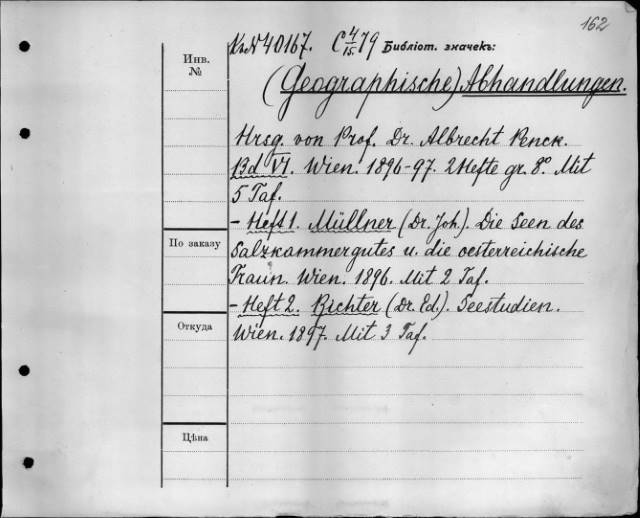 162
Кн№40167. C 4/15. 79 Библіот. значекъ:
Инв.
№
(Geographische) Abhandlungen.
Hrsg. von Prof. Dr. Albrecht Penck.
Bd VI. Wien. 1896-97. 2 Hefte gr. 8º. Mit
5 Taf.
- Heft 1. Müllner (Dr. Joh.). Die Seen des
По заказу
Salzkammergutes u. die oesterreichische
Traun. Wien. 1896. Mit 2 Taf.
- Heft 2. Richter (Dr. Ed.). Seestudien.
Откуда
Wien. 1897. Mit 3 Taf.
Цѣна